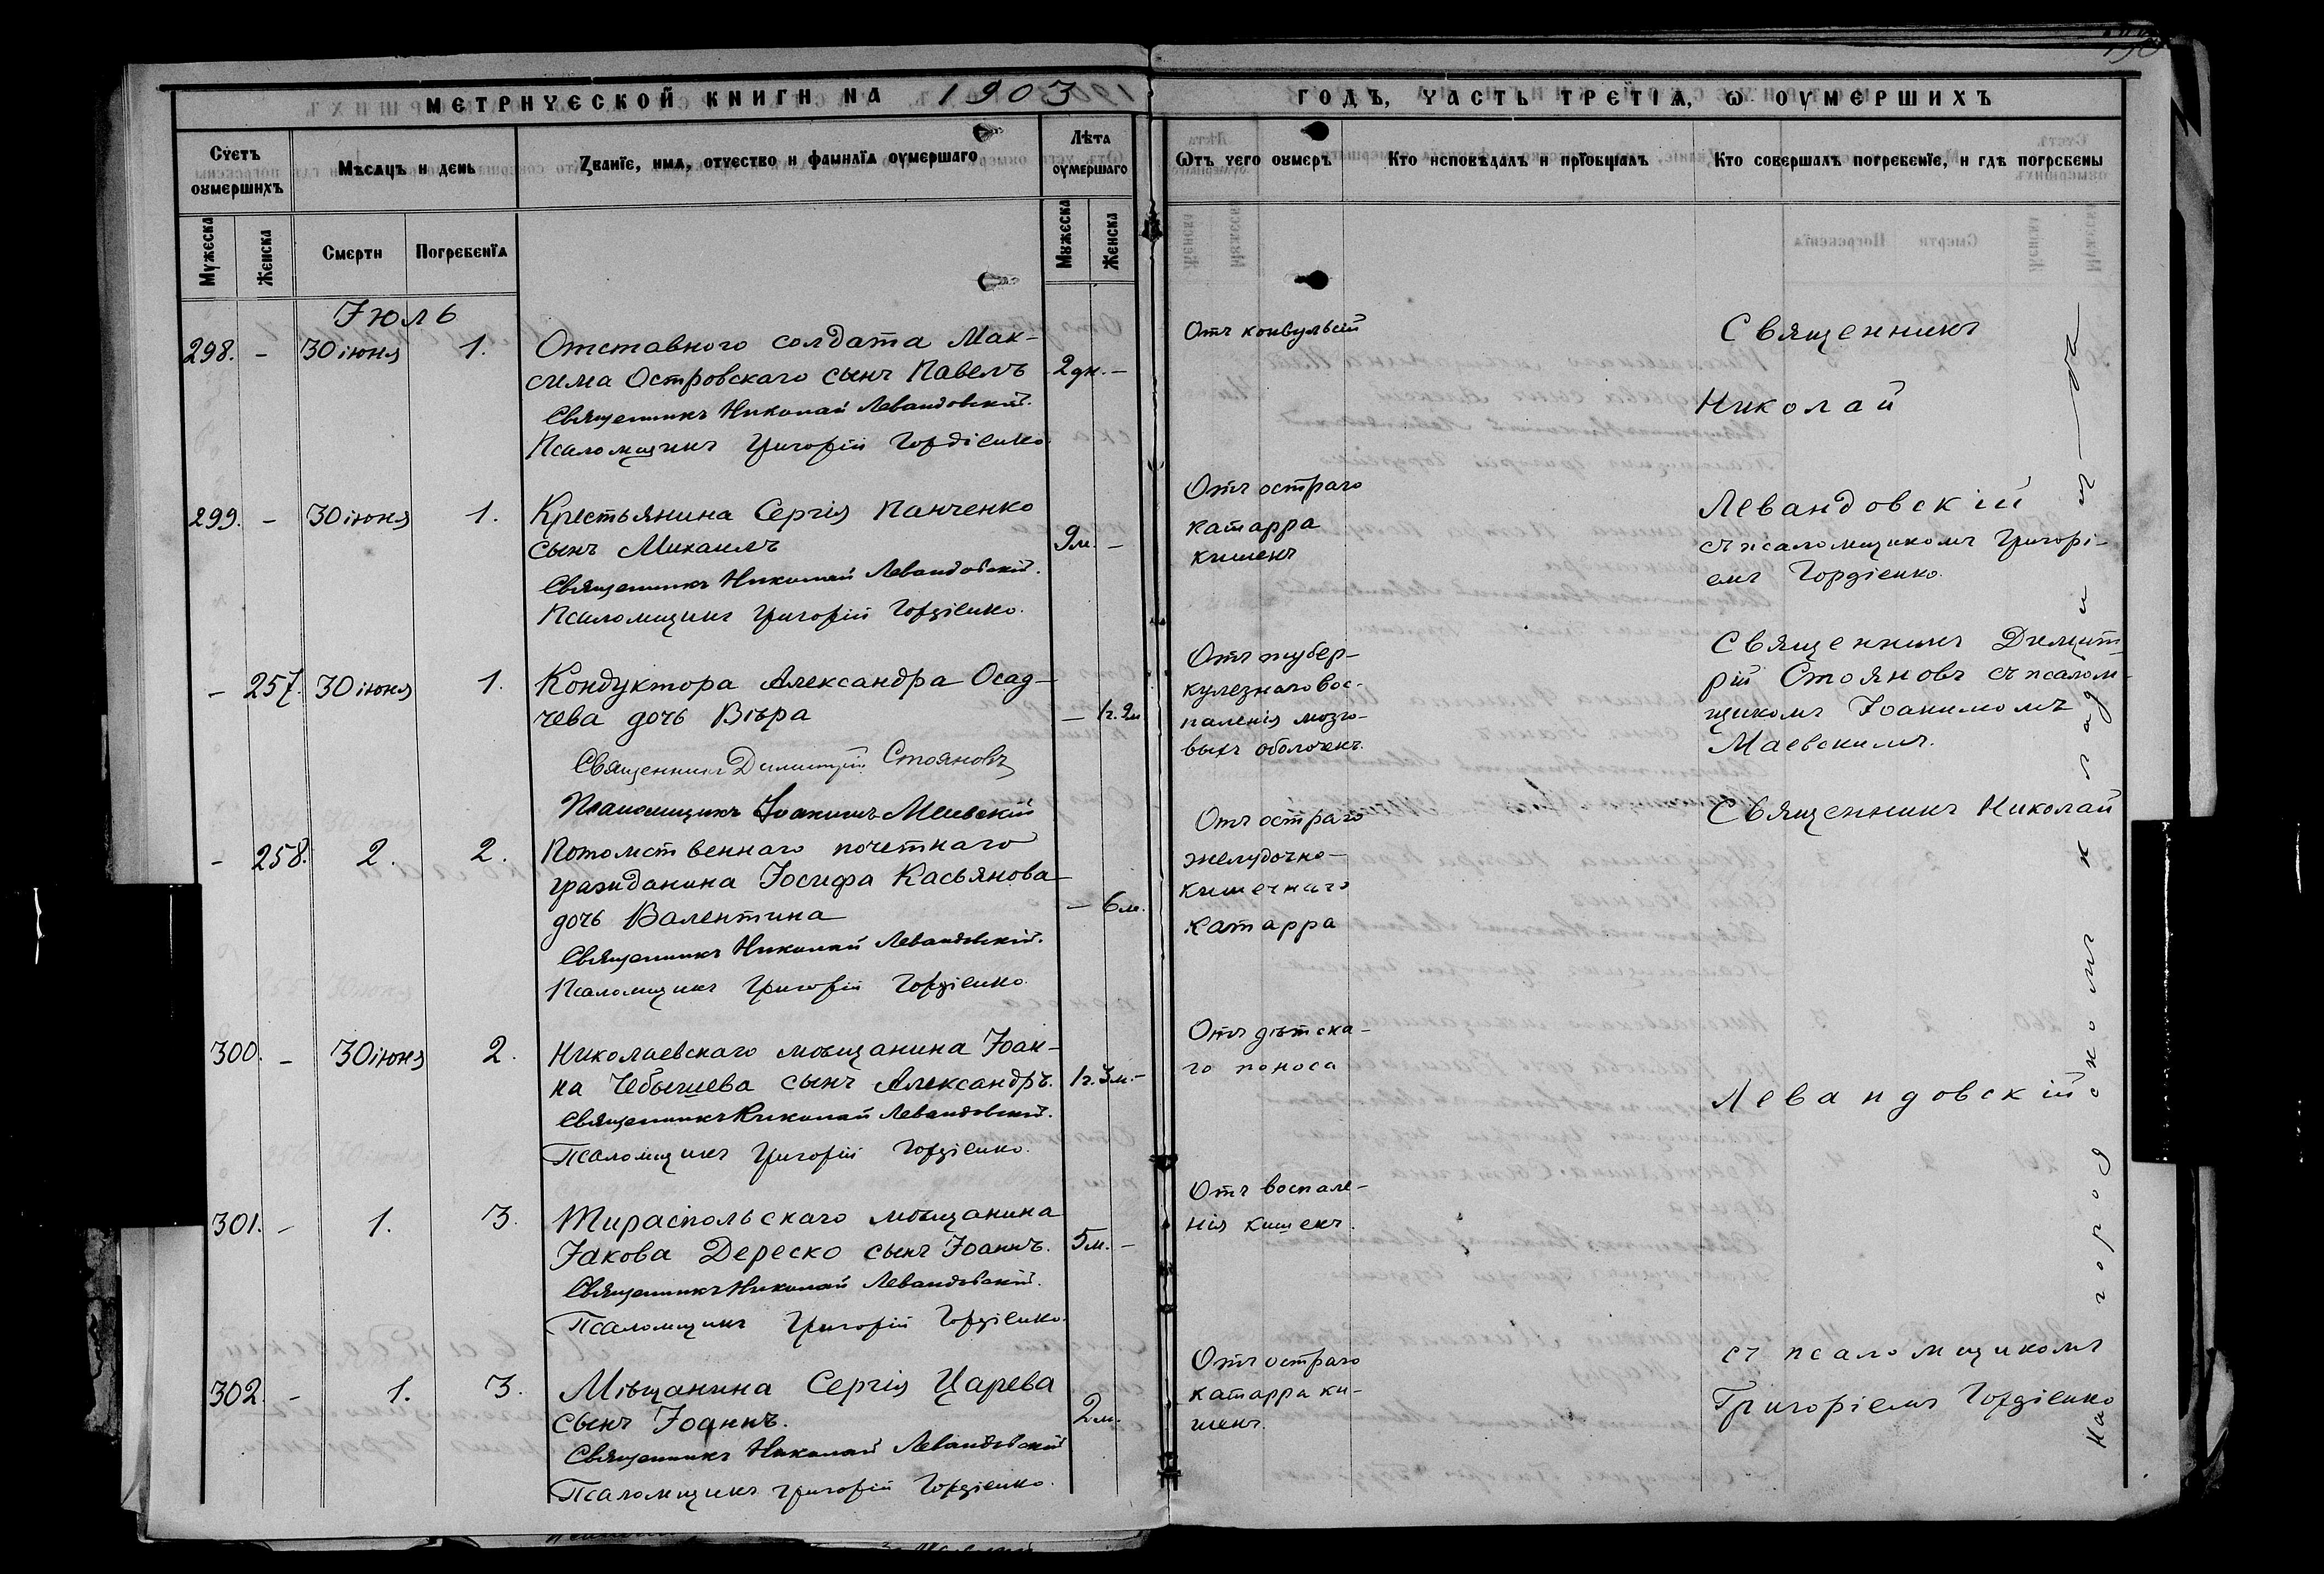 МЕТРИЧЕСКОЙ КНИГИ НА 1903 ГОДЪ, ЧАСТЬ ТРЕТІѦ, Ѡ ОУМЕРШИХЪ
Счетъ оумершихъ
Мѣсяцъ и день
Званїе, имѧ, отчество и фамилїѧ оумершаго
Лѣта оумершаго
Ѿтъ чего оумеръ
Кто исповѣдалъ и прїобщалъ
Кто совершалъ погребенїе, и гдѣ погребены
Мужеска
Женска
Смерти
Погребенїѧ
Мужеска
Женска
Іюль
298. - 30 іюня 1. Отставного солдата Мак-
сима Островскаго сынъ Павелъ 2 дн. -
Священникъ Николай Левандовскій.
Псаломщикъ Григорій Гордіенко.
299. - 30 іюня 1. Крестьянина Сергія Панченко
сынъ Михаилъ 9 м. -
Священникъ Николай Левандовскій.
Псаломщикъ Григорій Гордіенко.
- 257. 30 іюня 1. Кондуктора Александра Осад-
чева дочь Вѣра - 1 г. 9 м
Священникъ Димитрій Стояновъ
Псаломщикъ Іоакимъ Маевскій
- 258. 2. 2. Потомственнаго почетнаго
гражданина Іосифа Касьянова
дочь Валентина - 6 м.
Священникъ Николай Левандовскій.
Псаломщикъ Григорій Гордіенко.
300. - 30 іюня 2. Николаевскаго мѣщанина Іоан-
на Чебышева сынъ Александръ. 1 г. 3 м. -
Священникъ Николай Левандовскій.
Псаломщикъ Григорій Гордіенко.
301. - 1. 3. Тираспольскаго мѣщанина
Іакова Дереско сынъ Іоаннъ. 5 м. -
Священникъ Николай Левандовскій.
Псаломщикъ Григорій Гордіенко.
302. - 1. 3. Мѣщанина Сергія Царева
сынъ Іоаннъ. 2 м.
Священникъ Николай Левандовскій
Псаломщикъ Григорій Гордіенко.
Отъ конвульсій
Отъ остраго
катарра
кишекъ
Отъ тубер-
кулезнаго вос-
паленія мозго-
выхъ оболочекъ.
Отъ остраго
желудочно-
кишечнаго
катарра
Отъ дѣтска-
го поноса
Отъ воспале-
нія кишекъ.
Отъ остраго
катарра ки-
шекъ.
Священникъ
Николай
Левандовскій
съ псаломщикомъ Григорі-
емъ Гордіенко.
Священникъ Димит-
рій Стояновъ съ псалом-
щикомъ Іоакимомъ
Маевскимъ.
Священникъ Николай
Левандовскій
съ псаломщикомъ
Григоріемъ Гордіенко
На городскомъ кладбищѣ